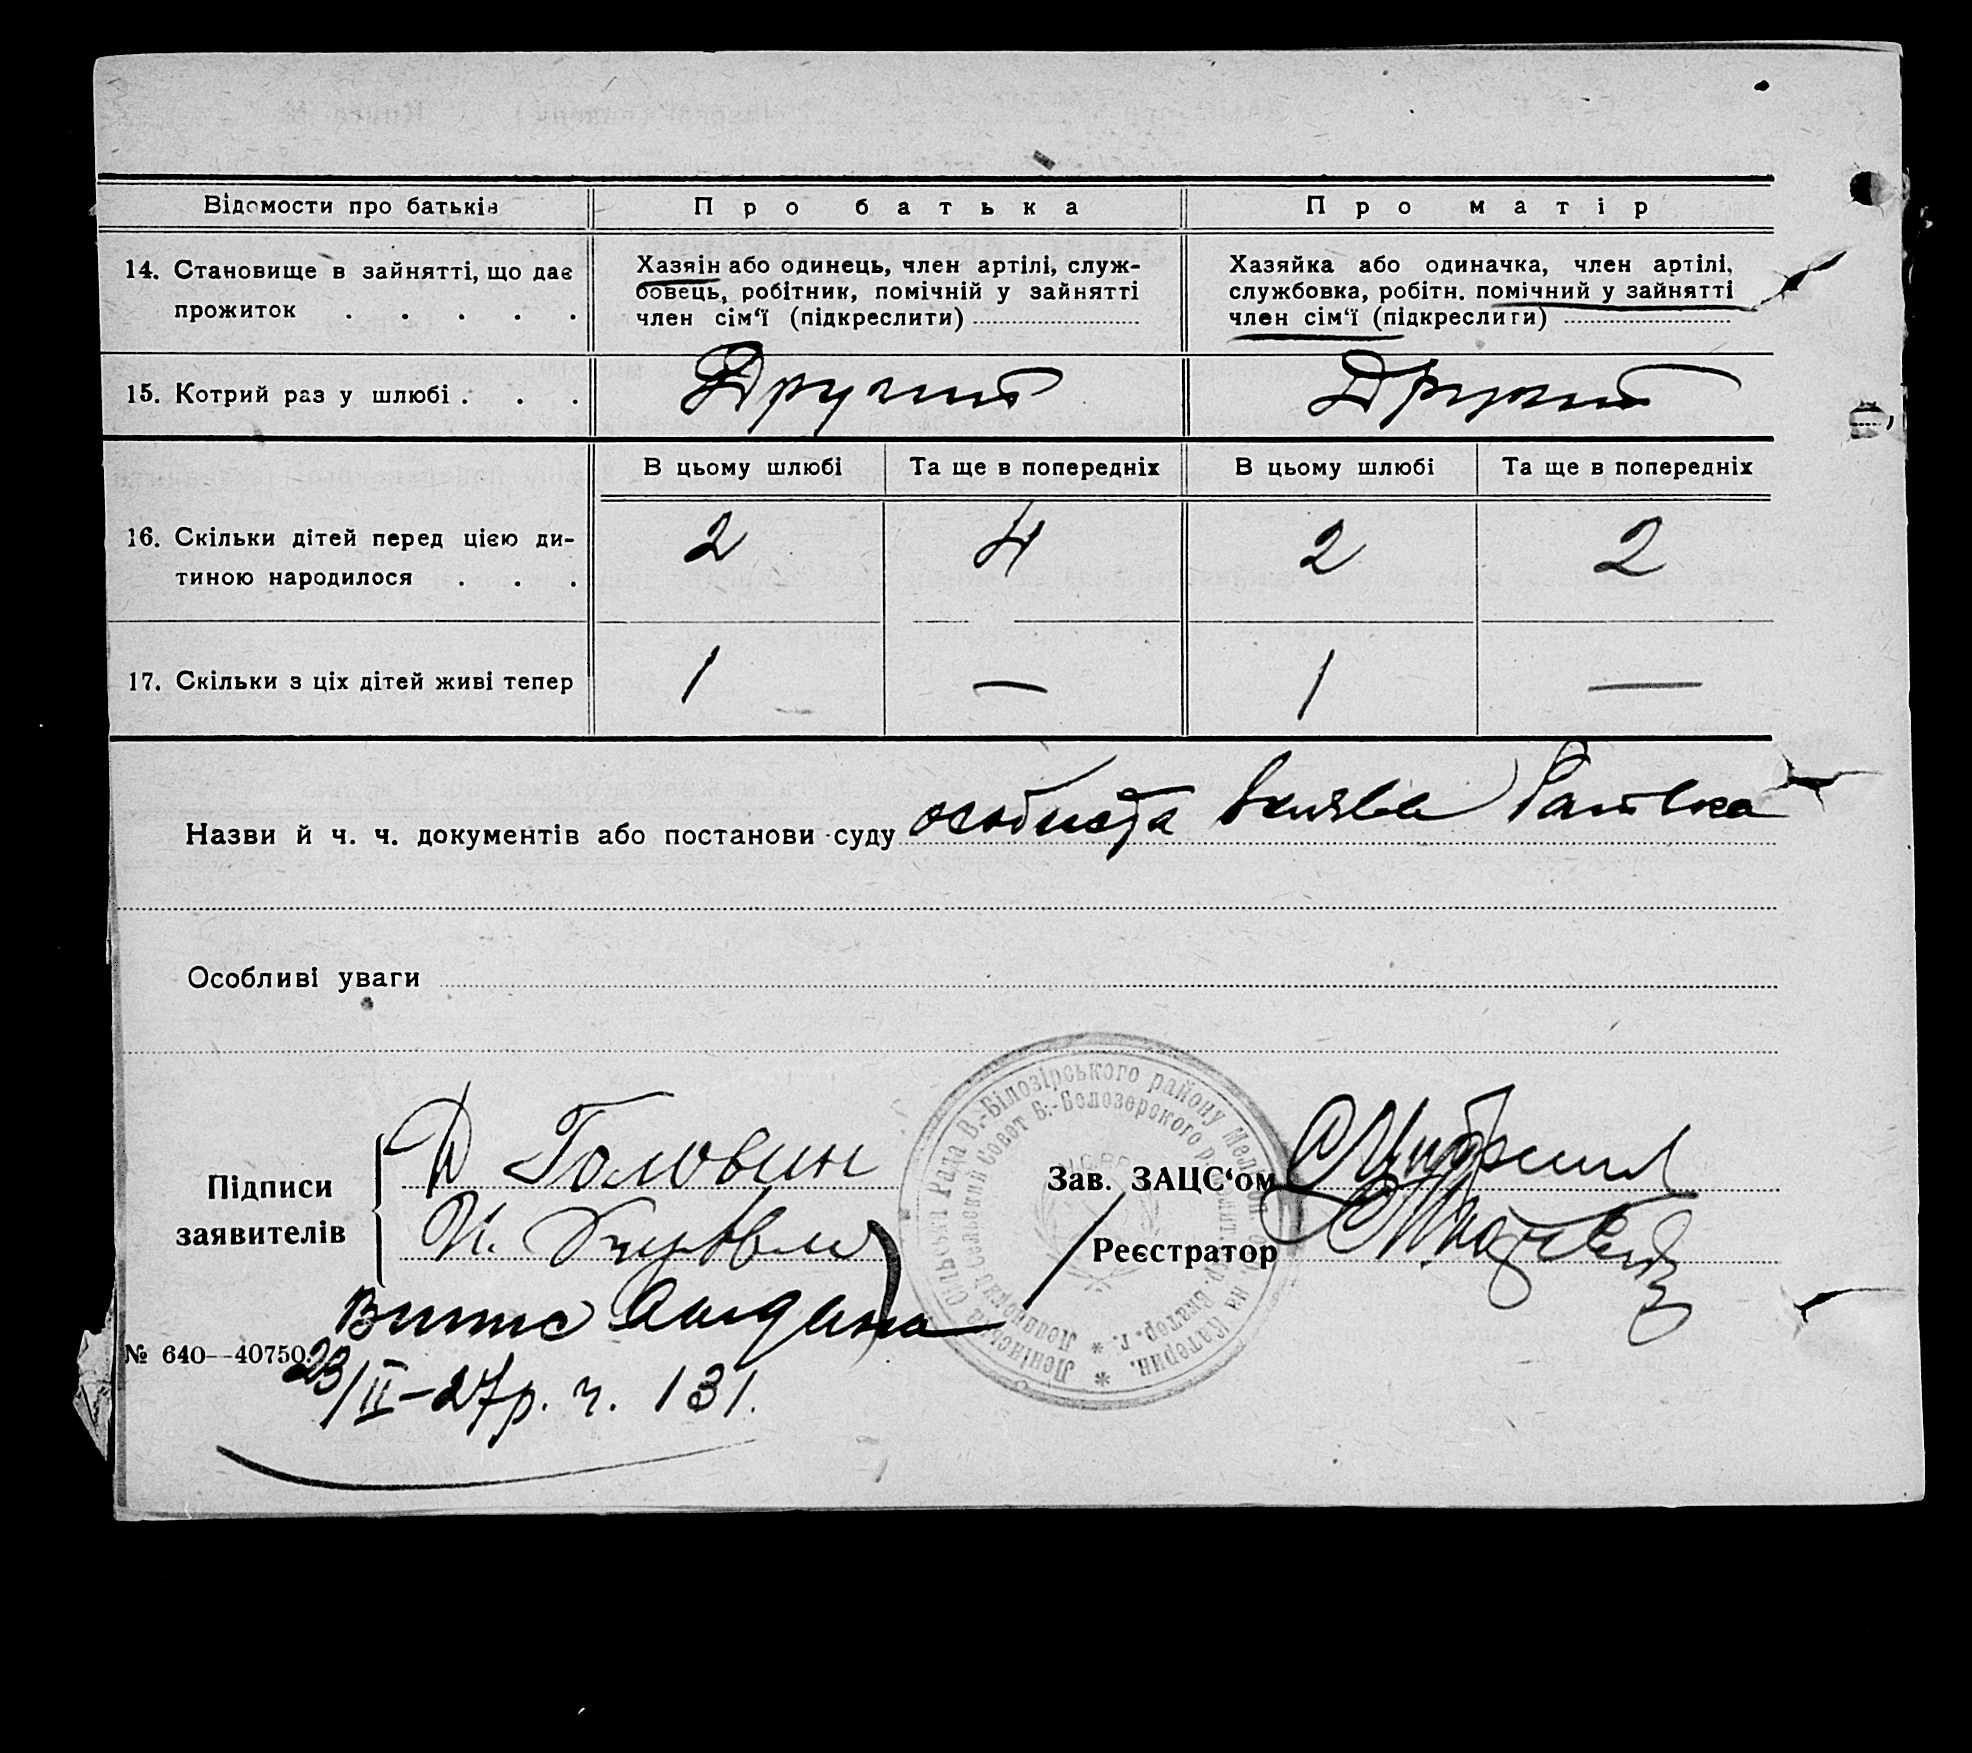 Відомости про батьків
Про батька
Про матір
14. Становище в зайнятті, що дає
прожиток . . . . .
Хазяін або одинець, член артілі, служ-
бовець, робітник, помічній у зайнятті
член сім‘ї (підкреслити)
Хазяйка або одиначка, член артілі,
службовка, робітн. помічний у зайнятті
член сім‘ї (підкреслити)
15. Котрий раз у шлюбі . . .
Другий
Другий
В цьому шлюбі
Та ще в попередніх
В цьому шлюбі
Та ще в попередніх
16. Скільки дітей перед цією ди-
тиною народилося . . .
2
4
2
2
17. Скільки з ціх дітей живі тепер
1
—
1
—
Назви й ч. ч. документів або постанови суду особиста
Особливі уваги
Підписи
заявителів
Д Головин
И.
Зав. ЗАЦС‘ом
Реєстратор
Ленінська Сільська Рада В.-Білозірського району
Сельский Совет В.-Белозерского
Витяг видано
№ 640—40750.
23/II–27р. ч. 131.